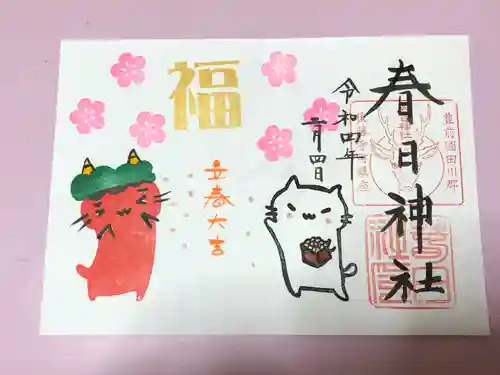 春日神社
豊前國田川郡
令和四年
二月四日
福
立春大吉